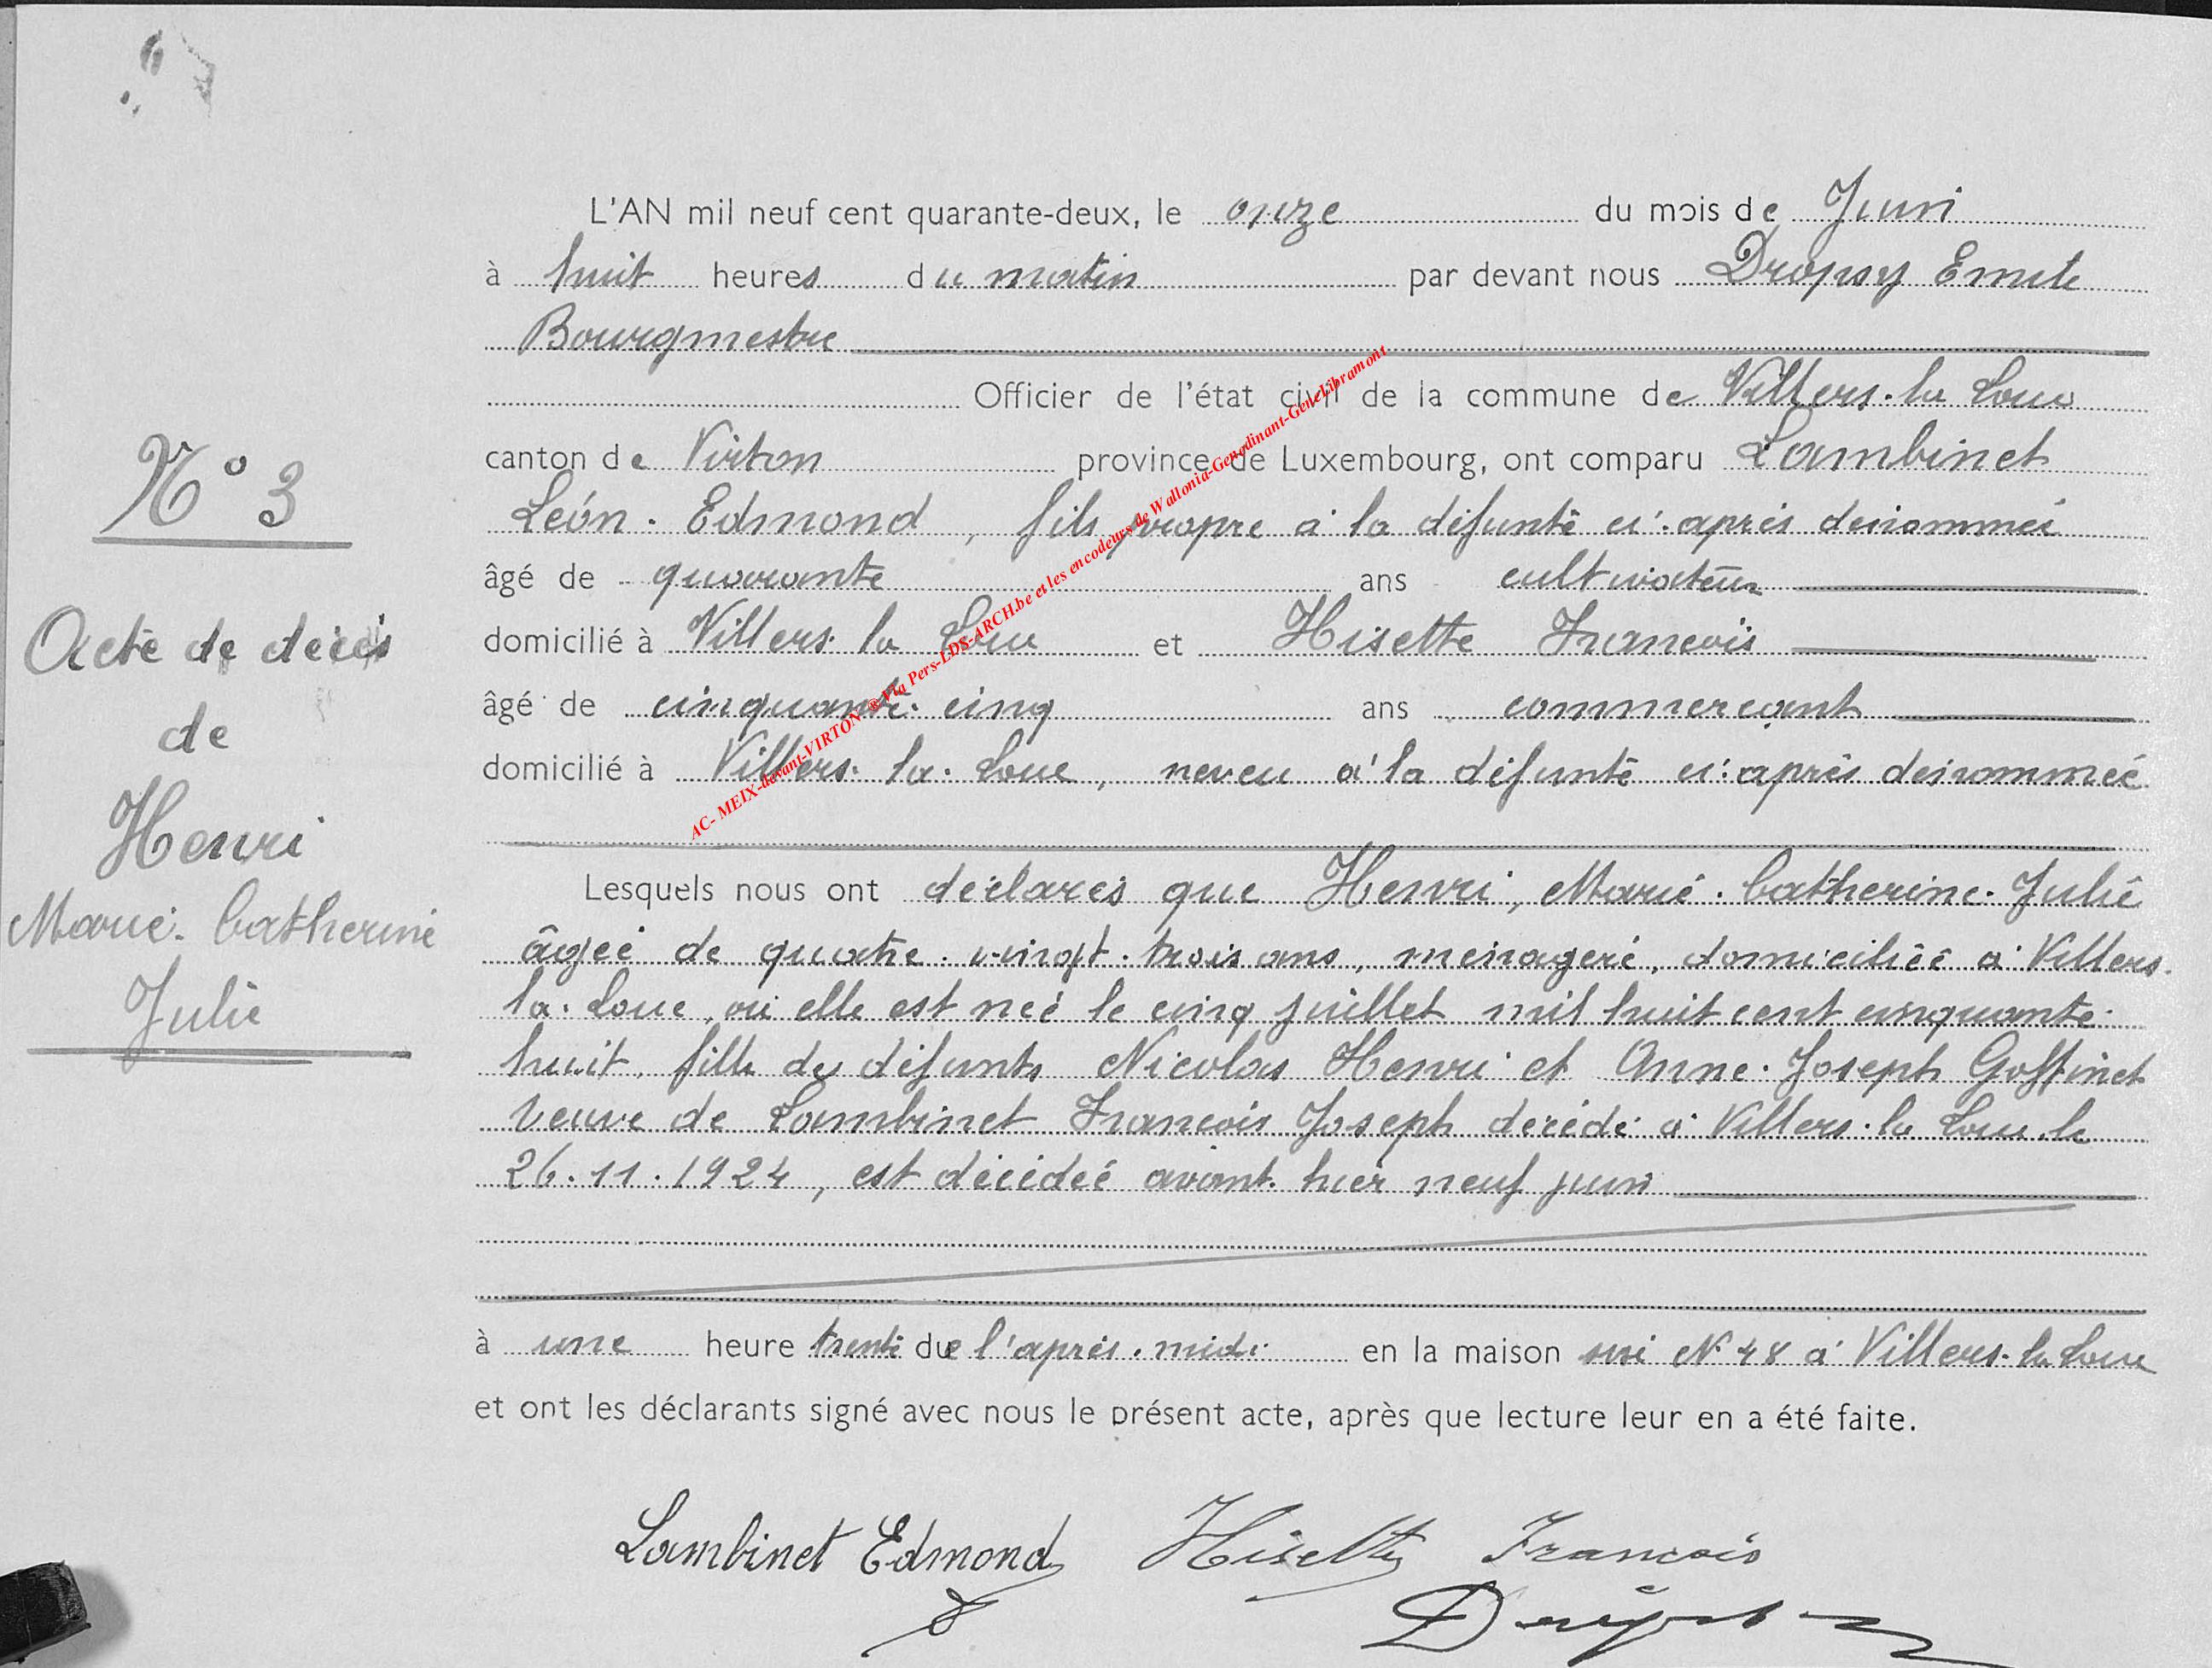 L'AN mil neuf cent quarante-deux, le onze du mois de Juin
à huit heures du matin par devant nous Dropsy Emile
Bourgmestre
Officier de l'état civil de la commune de Villers-la Loue
canton de Virton province de Luxembourg, ont comparu Lambinet
Léon-Edmond, fils propre à la défunte ci-après dénommée
âgé de quarante ans cultivateur
domicilié à Villers-la Loue et Hisette François
âgé de cinquante-cinq ans commerçant
domicilié à Villers-la-Loue, neveu à la défunte ci-après dénommée
N° 3
Acte de décès
de
Henri
Marie-Catherine
Julie
Lesquels nous ont déclarés que Henri, Marie-Catherine-Julie
âgée de quatre-vingt-trois ans, ménagère, domiciliée à Villers-
la-Loue, où elle est née le cinq juillet mil huit cent cinquante-
huit, fille des défunts Nicolas Henri et Anne-Joseph Goffinet
veuve de Lambinet François Joseph décédé à Villers-la Loue le
26.11.1924, est décédée avant-hier neuf juin
à une heure trente de l'après-midi en la maison sise N° 48 à Villers-la Loue
et ont les déclarants signé avec nous le présent acte, après que lecture leur en a été faite.
Lambinet Edmond Hisette François
Dropsy
AC- MEIX-devant-VIRTON ® Via Pers-LDS-ARCH.be et les encodeurs de Wallonia-Genedinant-GeneLibramont